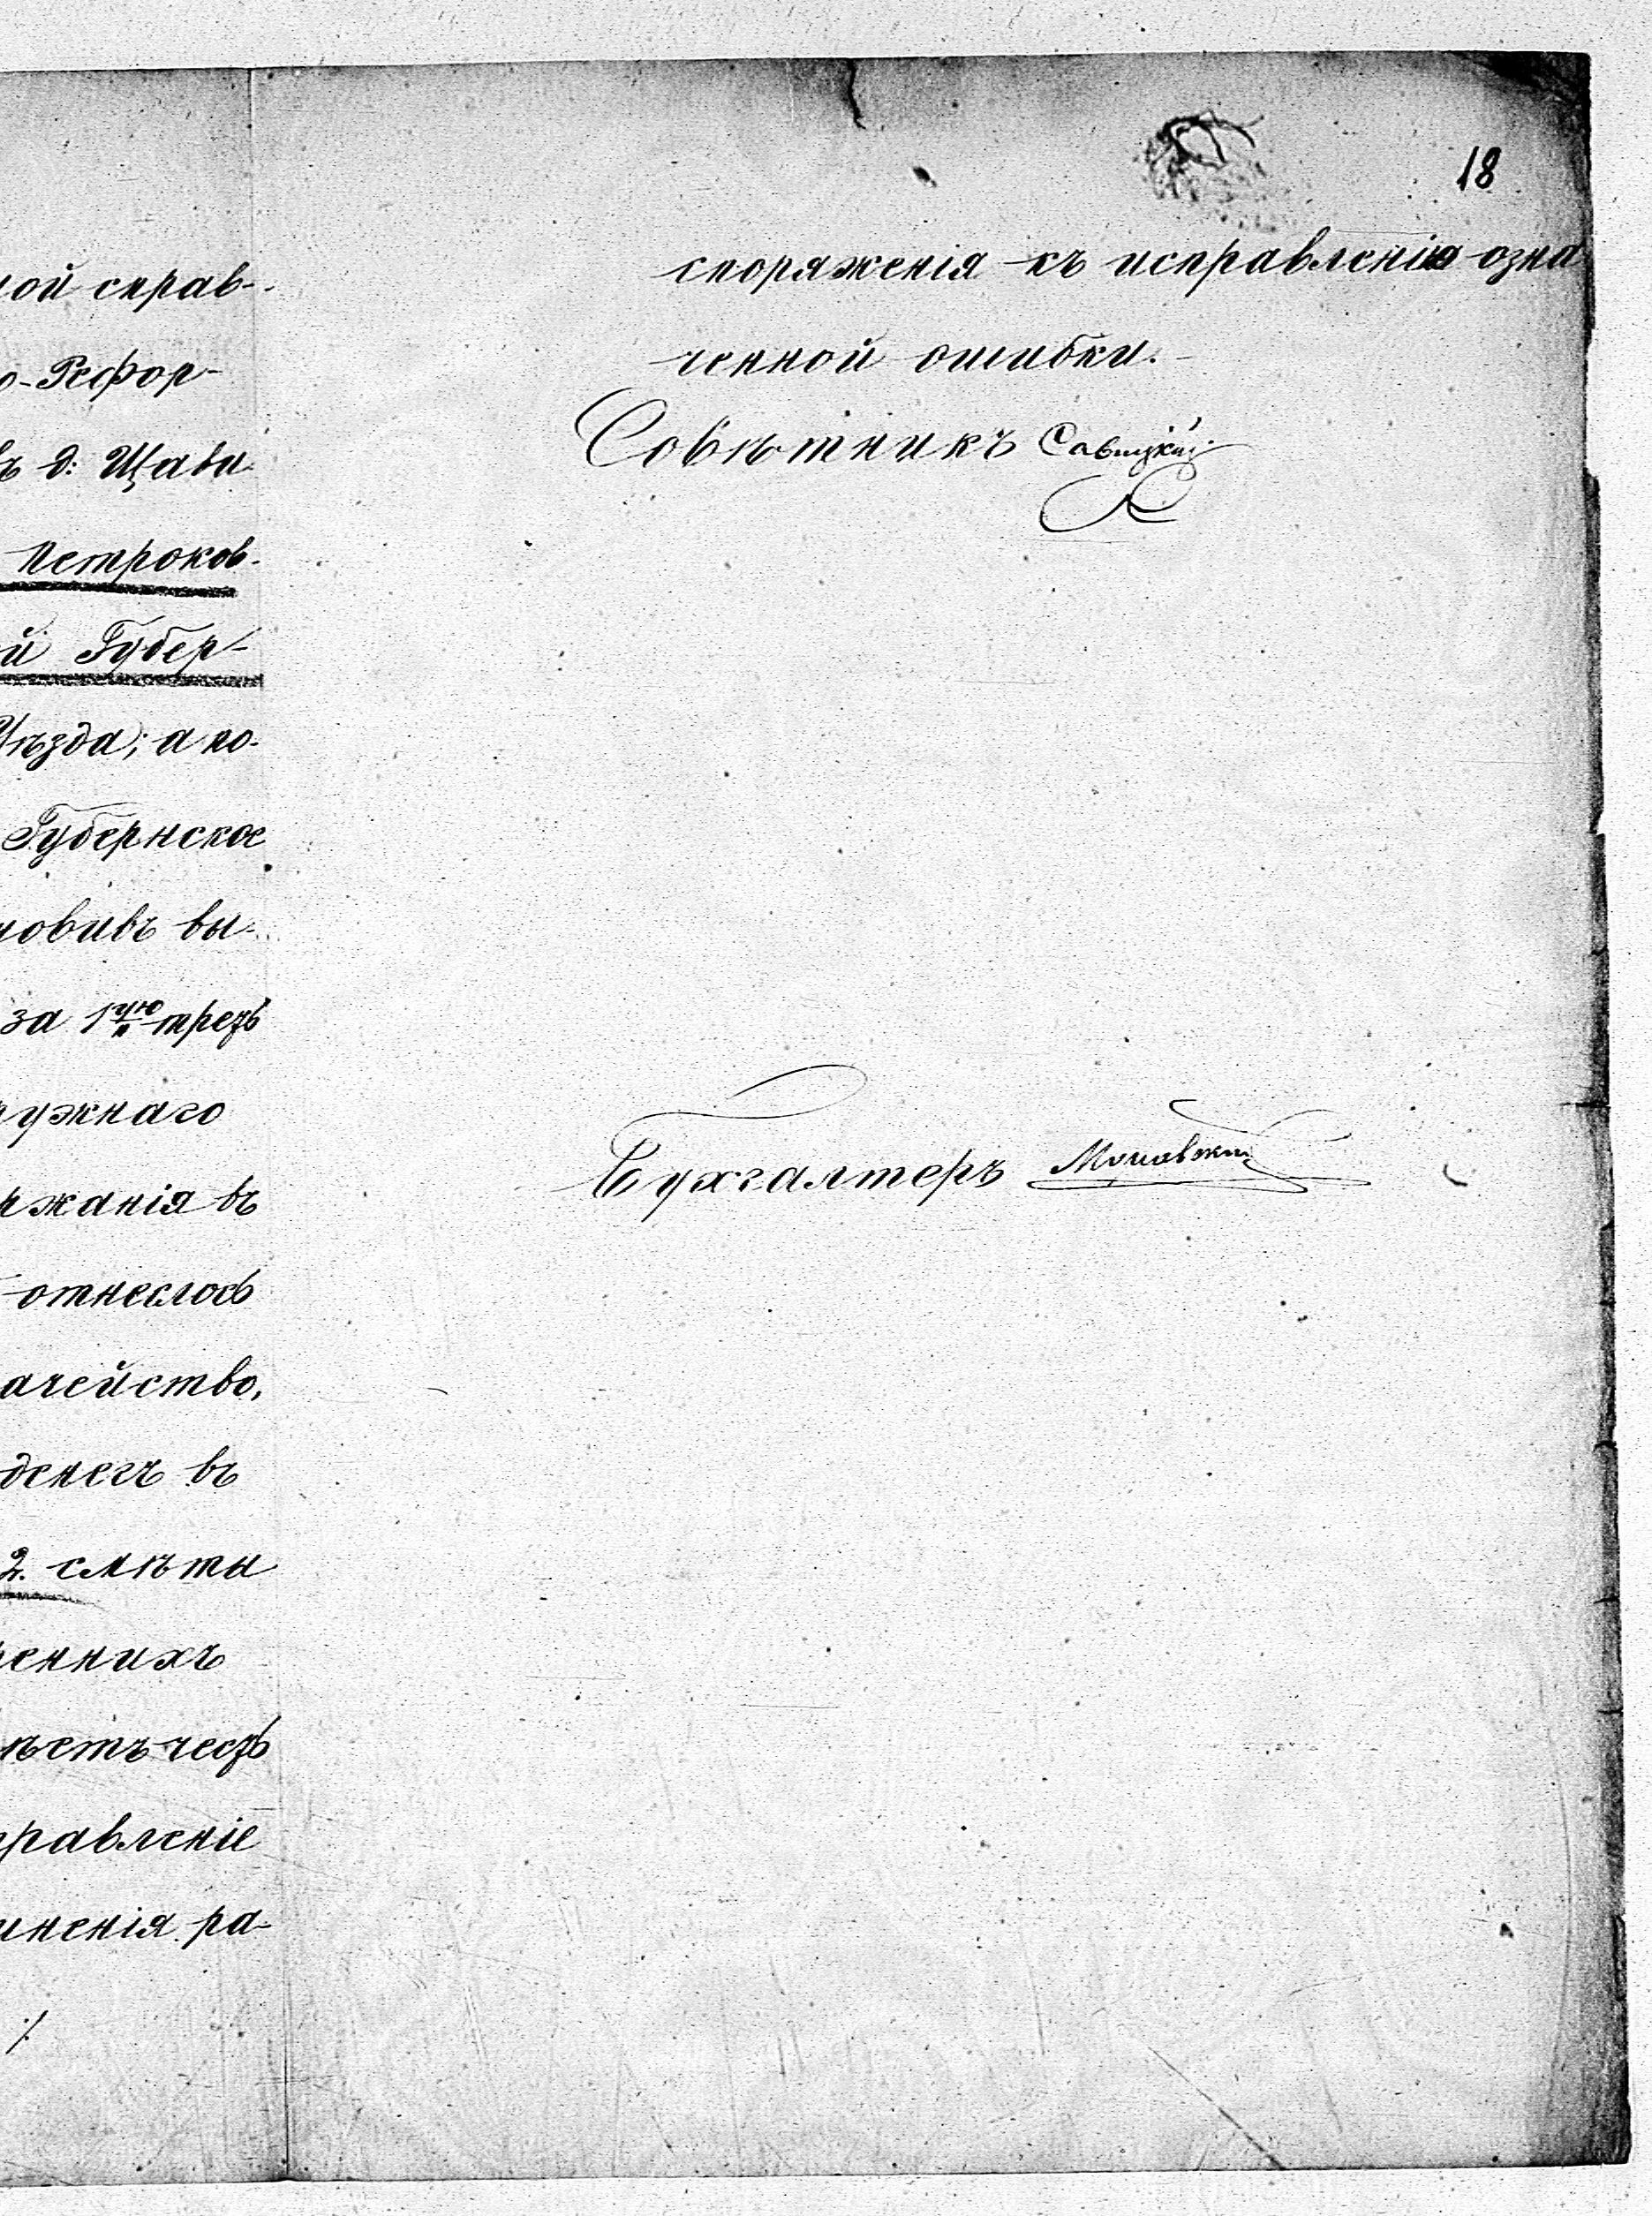 ой справ-
о-Рефор-
ъ д: Щави
Петроков-
й Губер-
Уѣзда; а по-
Губернское
новивъ вы-
за 1ую треть
ружнаго
ржанія въ
отнеслось
ачейство,
денегъ въ
2. смѣты
реннихъ
честь
правленіе
иненія ра-
./.
18
споряженія къ исправленію озна
ченной ошибки.
Совѣтникъ Савицкій
Бухгалтеръ